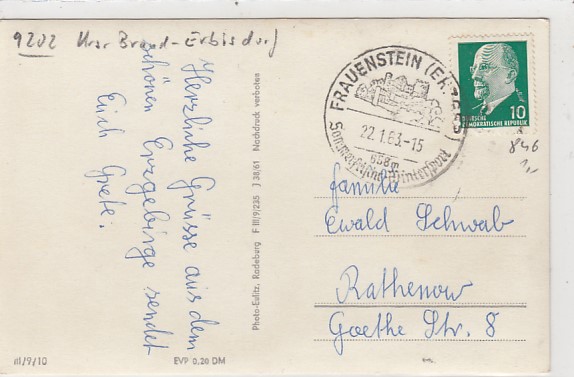 9202 Krsr Brand-Erbisdorf
Herzliche Grüsse aus dem
schönen Erzgebirge sendet
Euch Grete.
Photo-Eulitz, Radeberg F III/9/235 J 38/61 Nachdruck verboten
III/9/10
EVP 0,20 DM
FRAUENSTEIN (ERZGEB)
22.1.63.-15
658 m
Sommerfrische Wintersport
10
DEUTSCHE
DEMOKRATISCHE REPUBLIK
846
1,-
Familie
Ewald Schwab
Rathenow
Goethe Str. 8